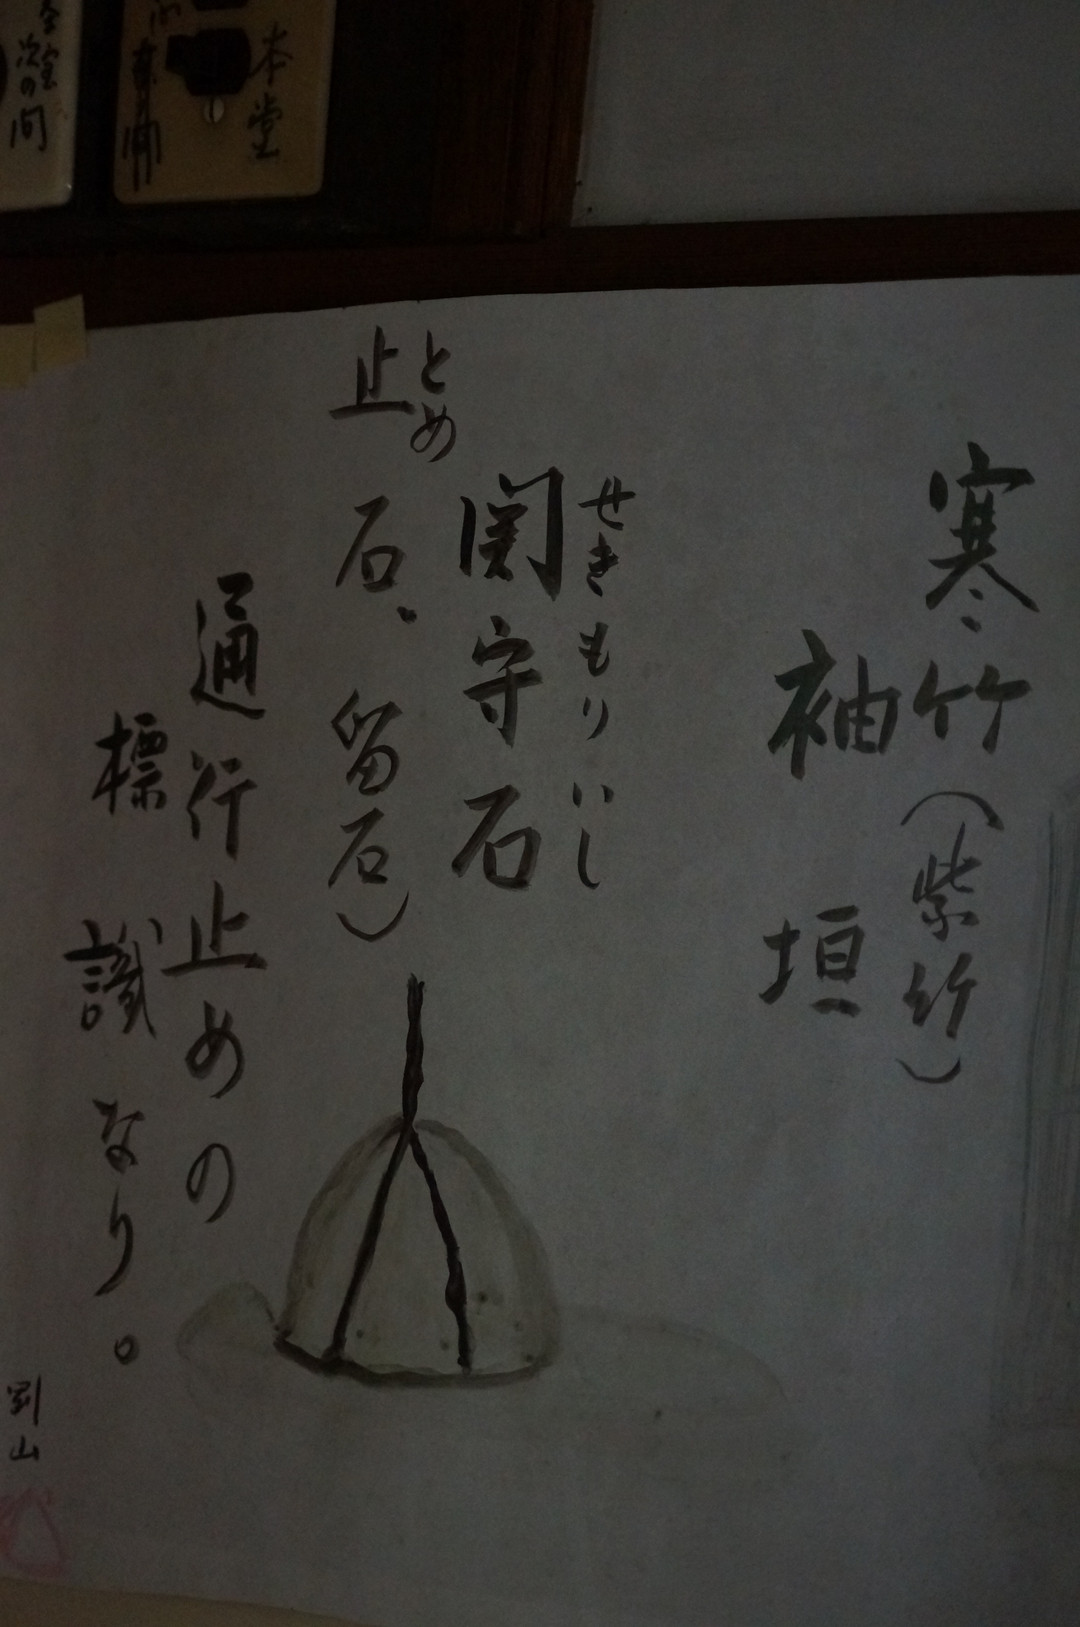 本堂
次の間
寒竹(紫竹)
袖垣
せきもりいし
関守石
とめ
止石、留石)
通行止めの
標識なり。
剛山